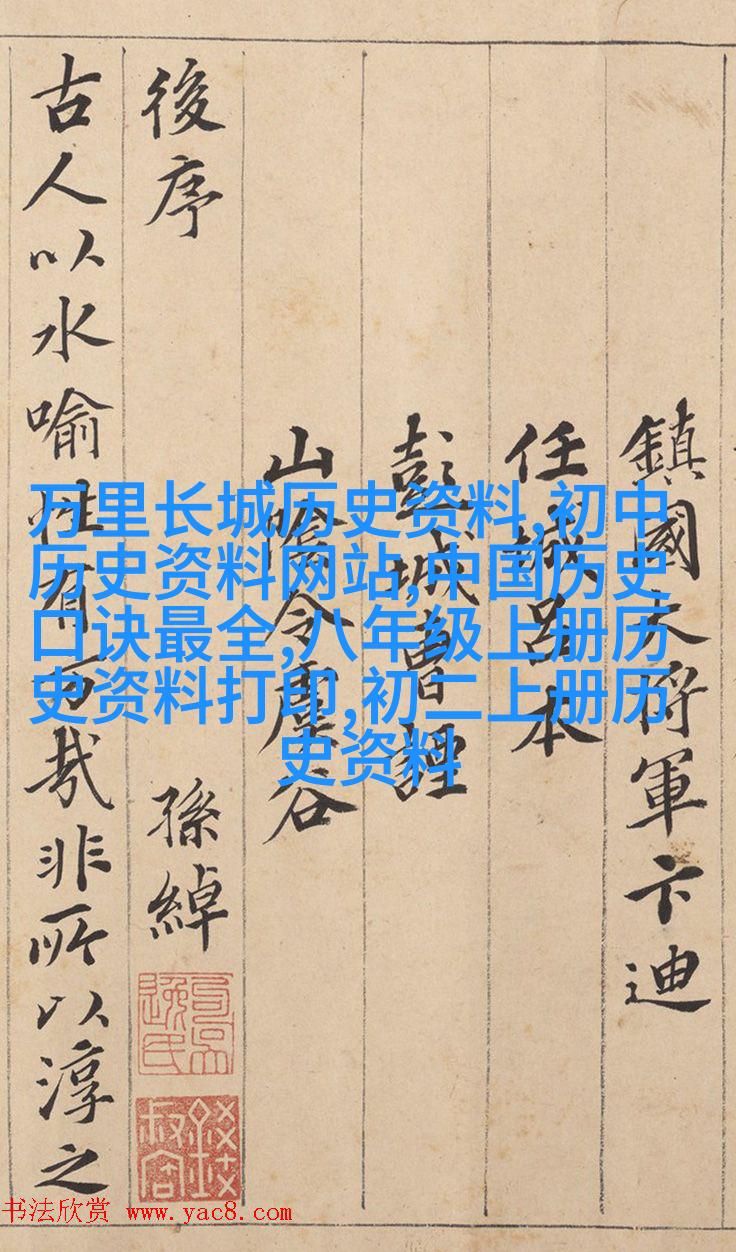 鎮國大將軍卞迪
任城呂本
彭城曹諲
山陰令虞谷
後序 孫綽
古人以水喻性有旨哉非所以淳之
万里长城历史资料,初中
历史资料网站,中国历史
口诀最全,八年级上册历
史资料打印,初二上册历
史资料
书法欣赏 www.yac8.com